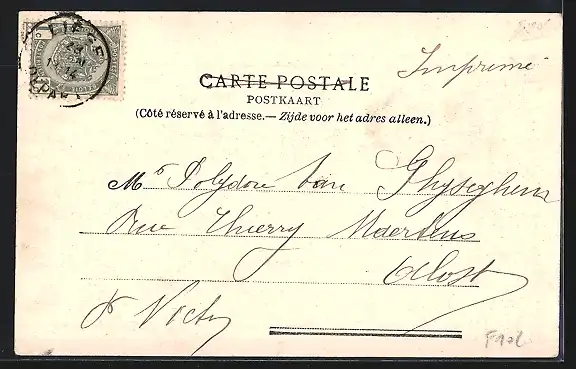 LIEGE
DEPART
Imprimé
CARTE POSTALE
POSTKAART
(Côté réservé à l'adresse.— Zijde voor het adres alleen.)
Mr Polydore Van Ghyseghem
Rue Thierry Maertens
Alost